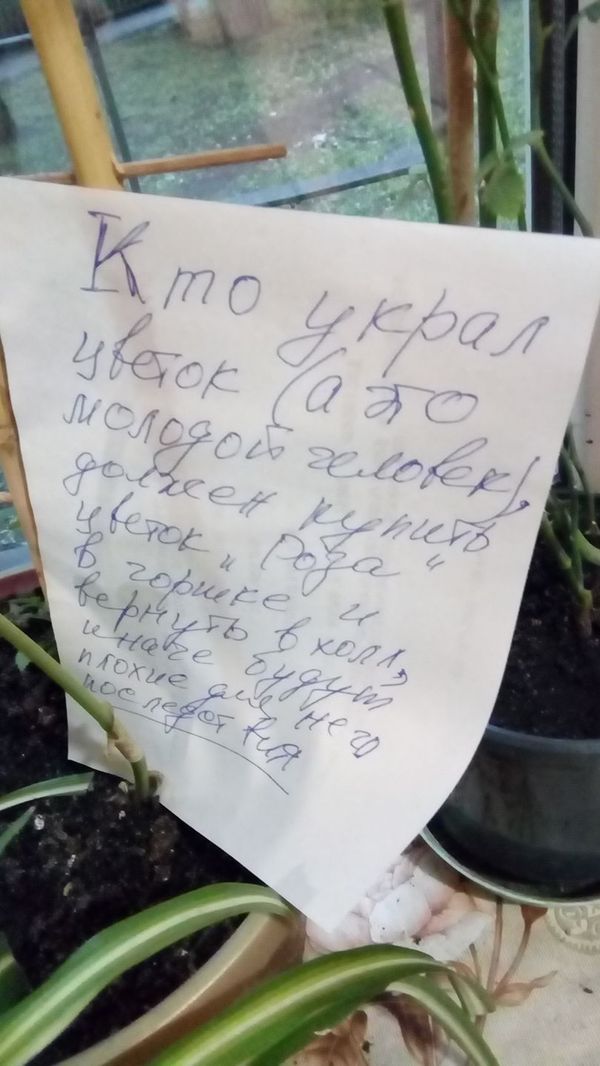 Кто украл
цветок (а это
молодой человек),
должен купить
цветок „Роза"
в горшке и
вернуть в холл,
иначе будут
плохие для него
последствия